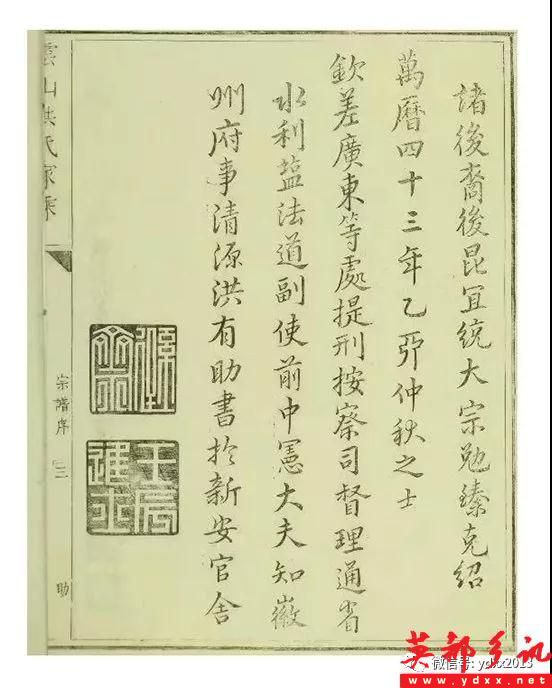 諸後裔後昆冝統大宗勉臻克紹
萬曆四十三年乙卯仲秋之士
欽差廣東等處提刑按察司督理通省
水利塩法道副使前中憲大夫知徽
州府事清源洪有助書扵新安官舍
壬辰進士
雲山洪氏家乘
宗譜序
三
助
微信号: ydxx2013
英都乡讯
www.ydxx.net